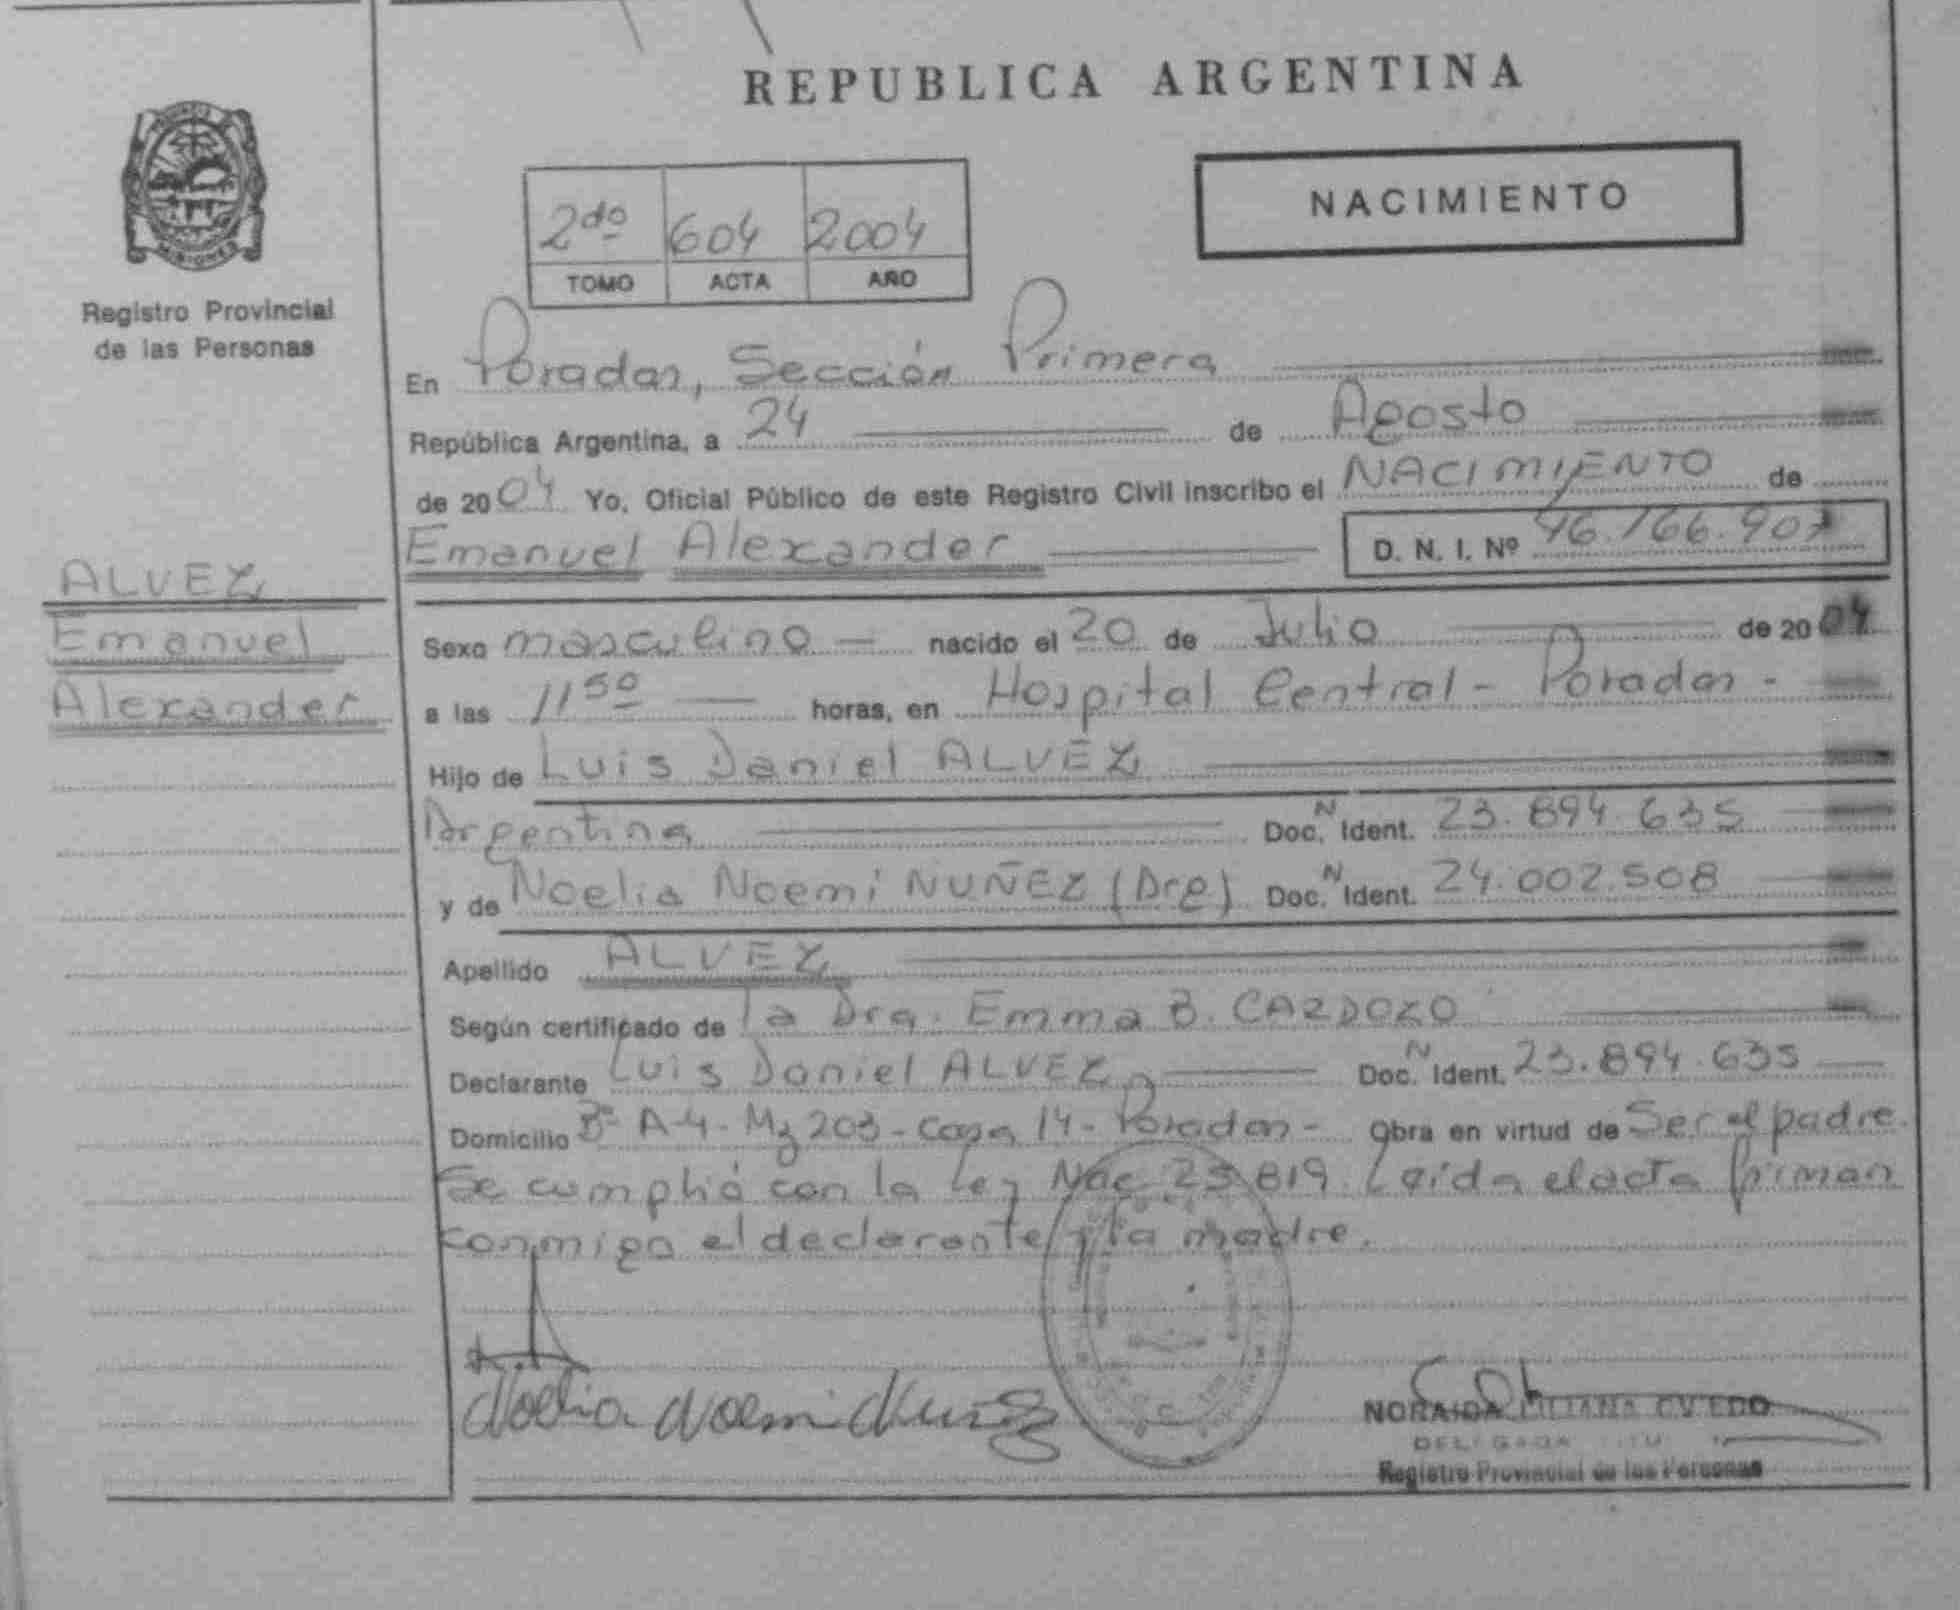 REPUBLICA ARGENTINA
NACIMIENTO
2do 604 2004
TOMO ACTA AÑO
MISIONES
Registro Provincial
de las Personas
En Posadas, Sección Primera
República Argentina, a 24 de Agosto
de 2004 Yo, Oficial Público de este Registro Civil inscribo el NACIMIENTO de
Emanuel Alexander D. N. I. Nº 46.166.907
ALVEZ
Emanuel
Alexander
Sexo masculino nacido el 20 de Julio de 2004
a las 11 50 horas, en Hospital Central - Posadas -
Hijo de Luis Daniel ALVEZ
Argentina Doc. N Ident. 23.894.635
y de Noelia Noemi NUÑEZ (Arg) Doc. N Ident. 24.002.508
Apellido ALVEZ
Según certificado de la Dra. Emma B. CARDOZO
Declarante Luis Daniel ALVEZ Doc. N Ident. 23.894.635
Domicilio Bº A-4 - Mz 203 - Casa 14 - Posadas - Obra en virtud de Ser el padre.
Se cumplió con la Ley Nac 25.819. Leída el acta firman
conmigo el declarante y la madre.
Noelia Noemi Nuñez
NORAIDA LILIANA OVIEDO
DELEGADA
Registro Provincial de las Personas